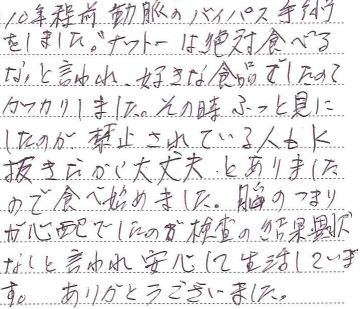 10年程前動脈のバイパス手術
をしました。ナットーは絶対食べる
なと言われ、好きな食品でしたので
ガッカリしました。その時ふっと見に
したのが禁止されている人もK
抜きだから大丈夫とありました
ので食べ始めました。脳のつまり
が心配でしたのが検査の結果異状
なしと言われ安心して生活していま
す。ありがとうございました。